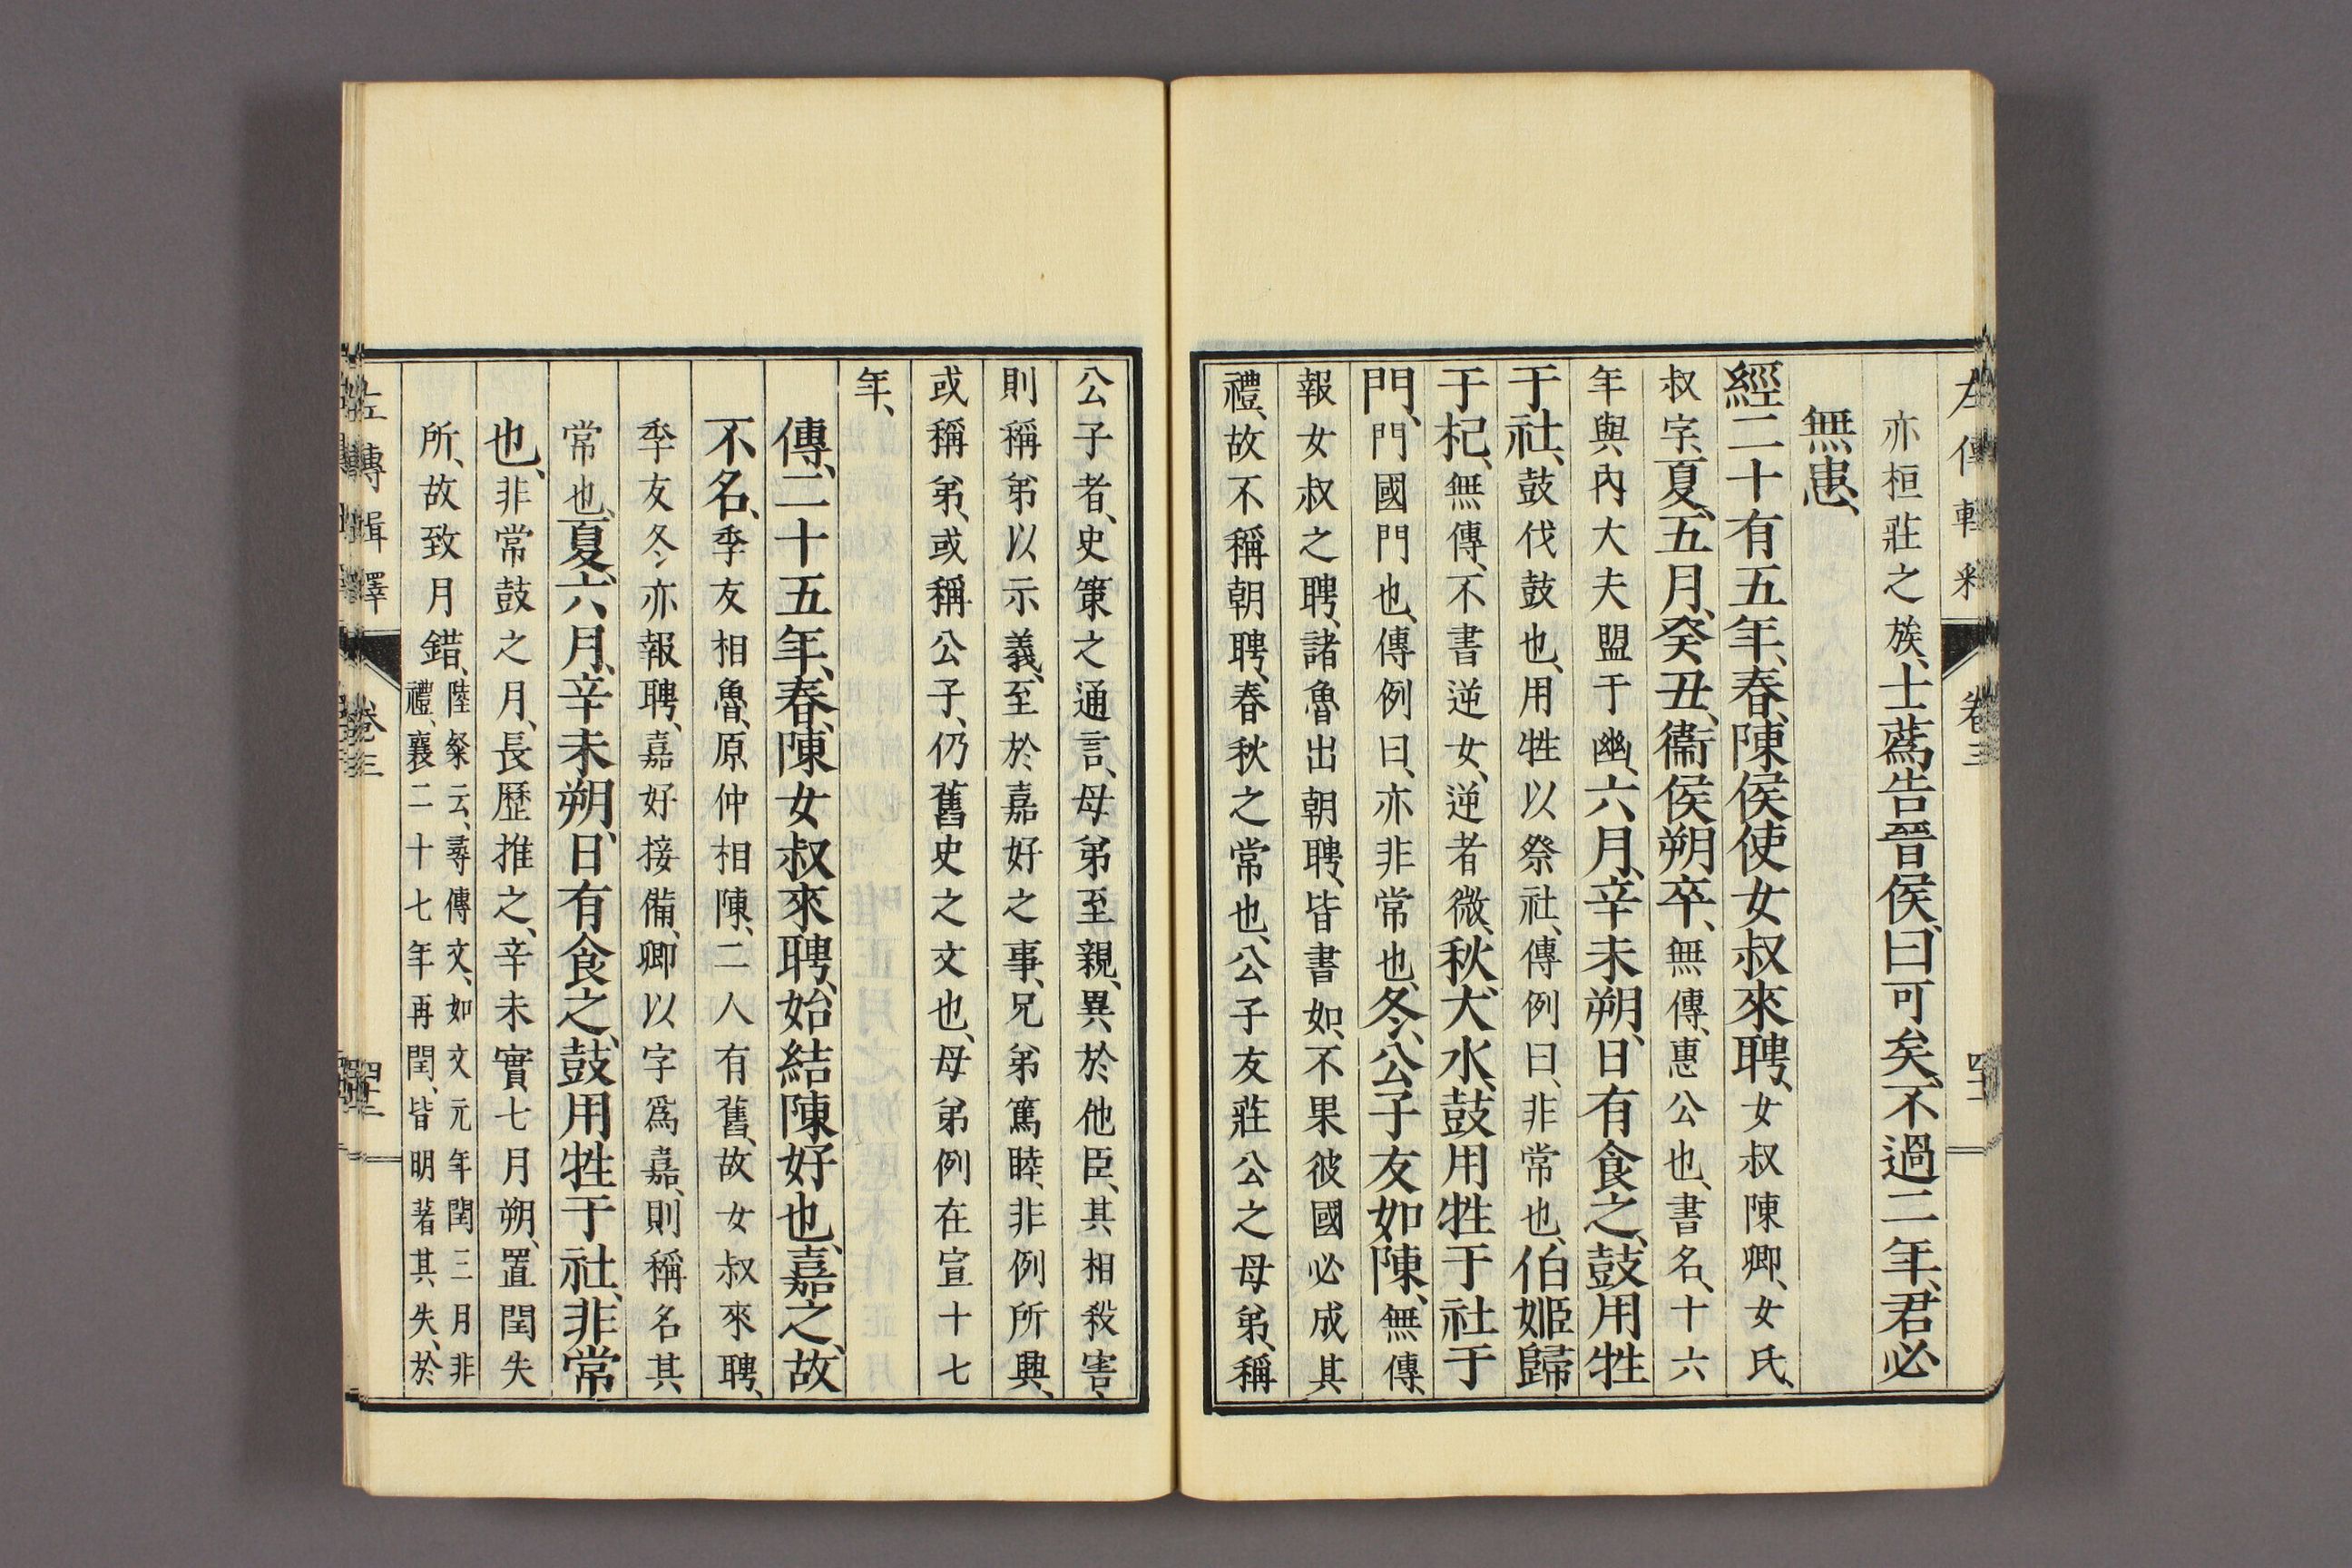 亦桓莊之族、士蔿告晉侯、曰可矣、不過二年、君必
無患、
經二十有五年、春、陳侯使女叔來聘、女叔陳卿、女氏、
叔字、夏、五月、癸丑、衞侯朔卒、無傳、惠公也、書名、十六
年與內大夫盟于幽、六月、辛未朔、日有食之、鼓用牲
于社、鼓伐鼓也、用牲以祭社、傳例曰、非常也、伯姬歸
于杞、無傳、不書逆女、逆者微、秋、大水、鼓用牲于社于
門、門國門也、傳例曰、亦非常也、冬、公子友如陳、無傳、
報女叔之聘、諸魯出朝聘、皆書如、不果彼國必成其
禮、故不稱朝聘、春秋之常也、公子友莊公之母弟、稱
公子者、史策之通言、母弟至親、異於他臣、其相殺害、
則稱弟以示義、至於嘉好之事、兄弟篤睦、非例所興、
或稱弟、或稱公子、仍舊史之文也、母弟例在宣十七
年、
傳、二十五年、春、陳女叔來聘、始結陳好也、嘉之、故
不名、季友相魯、原仲相陳、二人有舊、故女叔來聘、
季友冬亦報聘、嘉好接備、卿以字爲嘉、則稱名其
常也、夏、六月、辛未朔、日有食之、鼓用牲于社、非常
也、非常鼓之月、長歷推之、辛未實七月朔、置閏失
所、故致月錯、陸粲云、尋傳文、如文元年閏三月非
禮、襄二十七年再閏、皆明著其失、於
左傳輯釋
卷三